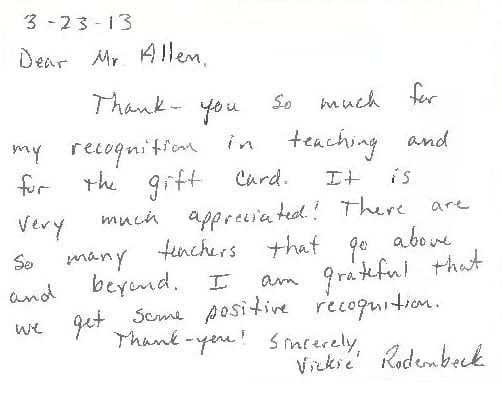 3-23-13
Dear Mr. Allen,
Thank-you so much for
my recognition in teaching and
for the gift card. It is
very much appreciated! There are
so many teachers that go above
and beyond. I am grateful that
we get some positive recognition.
Thank-you! Sincerely,
Vickie Rodenbeck